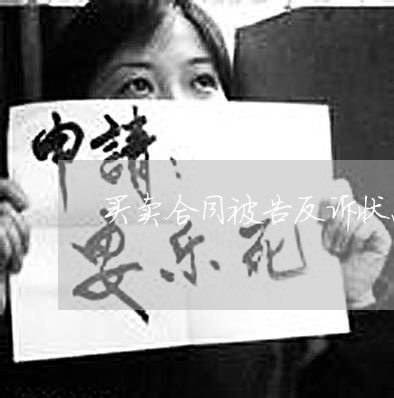 申請：
买卖合同被告反诉状
安乐死